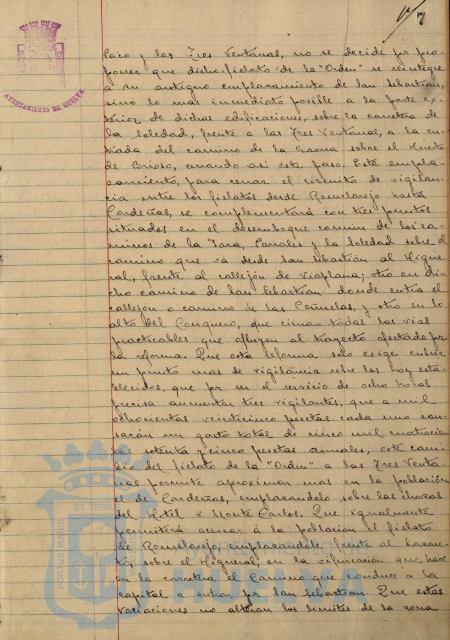 7
AYUNTAMIENTO DE HUELVA
laco y las Tres Ventanas, no se decide por pro-
poner que dicho fielato de la "Orden" se reintegre
a su antiguo emplazamiento de San Sebastian,
sino lo mas inmediato posible a la parte ex-
terior de dichas edificaciones, sobre la carretera de
la Soledad, frente a las Tres Ventanas, a la en-
trada del camino de la sobre el
de Brioso, cerrando asi este paso. Este empla-
zamiento, para cerrar el circuito de vigilan-
cia entre los fielatos desde Romeralejo hasta
Cardeñas, se complementará con tres puntos
situados en el desemboque comun de los ca-
minos de la Joya, Canales y la Soledad sobre el
camino que vá desde San Sebastián al Higue-
ral, frente al callejón de Viaplana; otro en di-
cho camino de San Sebastian donde entra el
callejon o camino de las y otro en lo
alto del Conquero, que cierran todas las vias
practicables que afluyen al trayecto afectado por
la reforma. Que esta reforma solo exige cubrir
un punto mas de vigilancia sobre los hoy esta-
blecidos, que por ser el servicio de ocho horas
precisa aumentar tres vigilantes, que a mil
ochocientas veinticinco pesetas cada uno cau-
sarán un gasto total de cinco mil cuatrocien-
tas setenta y cinco pesetas anuales, este cam-
bio del fielato de la "Orden" a las Tres Venta-
nas permite aproximar mas en la población
el de Cardeñas, emplazandolo sobre las chozas
del Hotil o Monte Carlos. Que igualmente
permitirá acercar á la poblacion el fielato
de Romeralejo, emplazandole frente al
sobre el Higueral, en la vifurcación que hace
en la carretera el Camino que conduce a la
capital a entrar por San Sebastian. Que estas
variaciones no alteran los limites de la zona